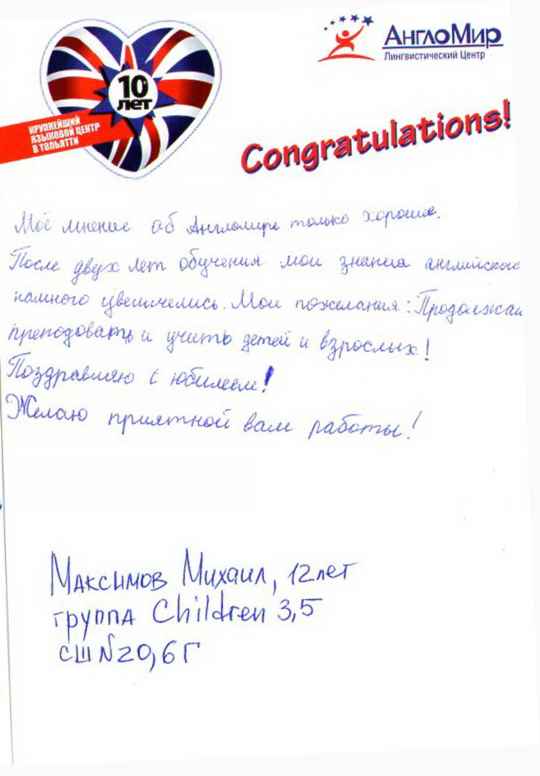 10
лет
КРУПНЕЙШИЙ
ЯЗЫКОВОЙ ЦЕНТР
В ТОЛЬЯТТИ
АнглоМир
Лингвистический Центр
Congratulations!
Моё мнение об Англомире только хорошее.
После двух лет обучения мои знания английского
намного увеличелись. Мои пожелания: Продолжай
преподовать и учить детей и взрослых!
Поздравляю с юбилеем!
Желаю приятной вам работы!
Максимов Михаил, 12 лет
группа Children 3,5
СШ №20, 6 Г